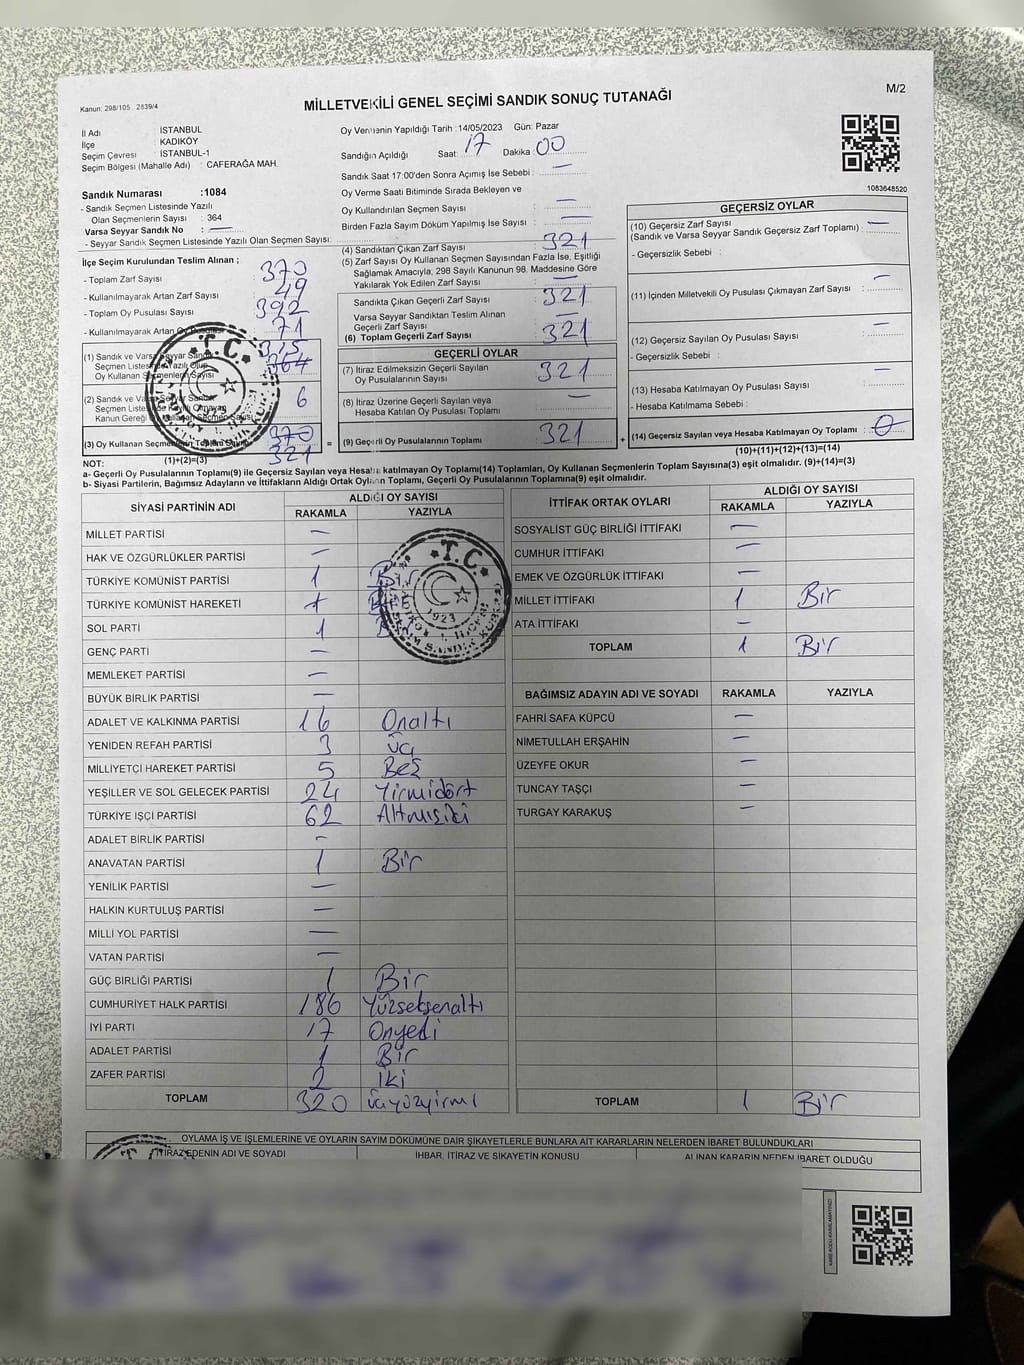 Kanun: 298/105 2839/4
MİLLETVEKİLİ GENEL SEÇİMİ SANDIK SONUÇ TUTANAĞI
M/2
İl Adı : İSTANBUL
İlçe : KADIKÖY
Seçim Çevresi : İSTANBUL-1
Seçim Bölgesi (Mahalle Adı) : CAFERAĞA MAH.
Sandık Numarası :1084
- Sandık Seçmen Listesinde Yazılı
Olan Seçmenlerin Sayısı : 364
Varsa Seyyar Sandık No : —
- Seyyar Sandık Seçmen Listesinde Yazılı Olan Seçmen Sayısı:
İlçe Seçim Kurulundan Teslim Alınan ;
- Toplam Zarf Sayısı : 370
- Kullanılmayarak Artan Zarf Sayısı : 49
- Toplam Oy Pusulası Sayısı : 392
- Kullanılmayarak Artan Oy 71
(1) Sandık ve Varsa Seyyar Sandık 315
Seçmen Listesinde Yazılı Olup 364
Oy Kullanan Seçmenlerin Sayısı
(2) Sandık ve Varsa Seyyar Sandık 6
Seçmen Listesinde Kayıtlı Olmayan
Kanun Gereği Oy Kullanan Seçmen Sayısı
(3) Oy Kullanan Seçmenlerin Toplam Sayısı 370
321
(1)+(2)=(3)
Oy Vermenin Yapıldığı Tarih :14/05/2023 Gün: Pazar
Sandığın Açıldığı Saat: 17 Dakika: 00
Sandık Saat 17:00'den Sonra Açımış İse Sebebi : —
Oy Verme Saati Bitiminde Sırada Bekleyen ve
Oy Kullandırılan Seçmen Sayısı : —
Birden Fazla Sayım Döküm Yapılmış İse Sayısı : —
(4) Sandıktan Çıkan Zarf Sayısı : 321
(5) Zarf Sayısı Oy Kullanan Seçmen Sayısından Fazla İse, Eşitliği
Sağlamak Amacıyla, 298 Sayılı Kanunun 98. Maddesine Göre
Yakılarak Yok Edilen Zarf Sayısı : —
Sandıkta Çıkan Geçerli Zarf Sayısı : 321
Varsa Seyyar Sandıktan Teslim Alınan
Geçerli Zarf Sayısı : —
(6) Toplam Geçerli Zarf Sayısı : 321
GEÇERLİ OYLAR
(7) İtiraz Edilmeksizin Geçerli Sayılan
Oy Pusulalarının Sayısı : 321
(8) İtiraz Üzerine Geçerli Sayılan veya
Hesaba Katılan Oy Pusulası Toplamı : —
= (9) Geçerli Oy Pusulalarının Toplamı : 321 +
1083648520
GEÇERSİZ OYLAR
(10) Geçersiz Zarf Sayısı
(Sandık ve Varsa Seyyar Sandık Geçersiz Zarf Toplamı) : —
- Geçersizlik Sebebi :
(11) İçinden Milletvekili Oy Pusulası Çıkmayan Zarf Sayısı : —
(12) Geçersiz Sayılan Oy Pusulası Sayısı : —
- Geçersizlik Sebebi :
(13) Hesaba Katılmayan Oy Pusulası Sayısı : —
- Hesaba Katılmama Sebebi :
(14) Geçersiz Sayılan veya Hesaba Katılmayan Oy Toplamı : 0
(10)+(11)+(12)+(13)=(14)
NOT:
a- Geçerli Oy Pusulalarının Toplamı(9) ile Geçersiz Sayılan veya Hesaba katılmayan Oy Toplamı(14) Toplamları, Oy Kullanan Seçmenlerin Toplam Sayısına(3) eşit olmalıdır. (9)+(14)=(3)
b- Siyasi Partilerin, Bağımsız Adayların ve İttifakların Aldığı Ortak Oyların Toplamı, Geçerli Oy Pusulalarının Toplamına(9) eşit olmalıdır.
SİYASİ PARTİNİN ADI ALDIĞI OY SAYISI
RAKAMLA YAZIYLA
MİLLET PARTİSİ —
HAK VE ÖZGÜRLÜKLER PARTİSİ —
TÜRKİYE KOMÜNİST PARTİSİ 1 Bir
TÜRKİYE KOMÜNİST HAREKETİ
SOL PARTİ 1
GENÇ PARTİ —
MEMLEKET PARTİSİ —
BÜYÜK BİRLİK PARTİSİ —
ADALET VE KALKINMA PARTİSİ 16 Onaltı
YENİDEN REFAH PARTİSİ 3 üç
MİLLİYETÇİ HAREKET PARTİSİ 5 Beş
YEŞİLLER VE SOL GELECEK PARTİSİ 24 Yirmidört
TÜRKİYE İŞÇİ PARTİSİ 62 Altmışiki
ADALET BİRLİK PARTİSİ -
ANAVATAN PARTİSİ 1 Bir
YENİLİK PARTİSİ —
HALKIN KURTULUŞ PARTİSİ —
MİLLİ YOL PARTİSİ —
VATAN PARTİSİ —
GÜÇ BİRLİĞİ PARTİSİ 1 Bir
CUMHURİYET HALK PARTİSİ 186 Yüzseksenaltı
İYİ PARTİ 17 Onyedi
ADALET PARTİSİ 1 Bir
ZAFER PARTİSİ 2 İki
TOPLAM 320 üçyüzyirmi
İTTİFAK ORTAK OYLARI ALDIĞI OY SAYISI
RAKAMLA YAZIYLA
SOSYALİST GÜÇ BİRLİĞİ İTTİFAKI —
CUMHUR İTTİFAKI —
EMEK VE ÖZGÜRLÜK İTTİFAKI —
MİLLET İTTİFAKI 1 Bir
ATA İTTİFAKI —
TOPLAM 1 Bir
BAĞIMSIZ ADAYIN ADI VE SOYADI RAKAMLA YAZIYLA
FAHRİ SAFA KÜPCÜ —
NİMETULLAH ERŞAHİN —
ÜZEYFE OKUR —
TUNCAY TAŞÇI —
TURGAY KARAKUŞ —
TOPLAM 1 Bir
T.C.
T.C.
1923
OYLAMA İŞ VE İŞLEMLERİNE VE OYLARIN SAYIM DÖKÜMÜNE DAİR ŞİKAYETLERLE BUNLARA AİT KARARLARIN NELERDEN İBARET BULUNDUKLARI
İTİRAZ EDENİN ADI VE SOYADI İHBAR, İTİRAZ VE ŞİKAYETİN KONUSU ALINAN KARARIN NEDEN İBARET OLDUĞU